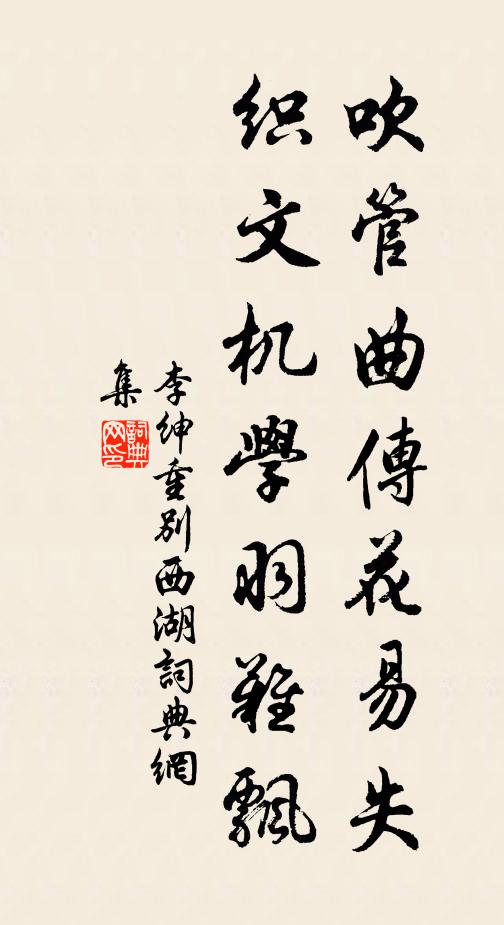 吹管曲傳花易失
织文机學羽難飄
李绅重别西湖詞典網
集
詞典网印